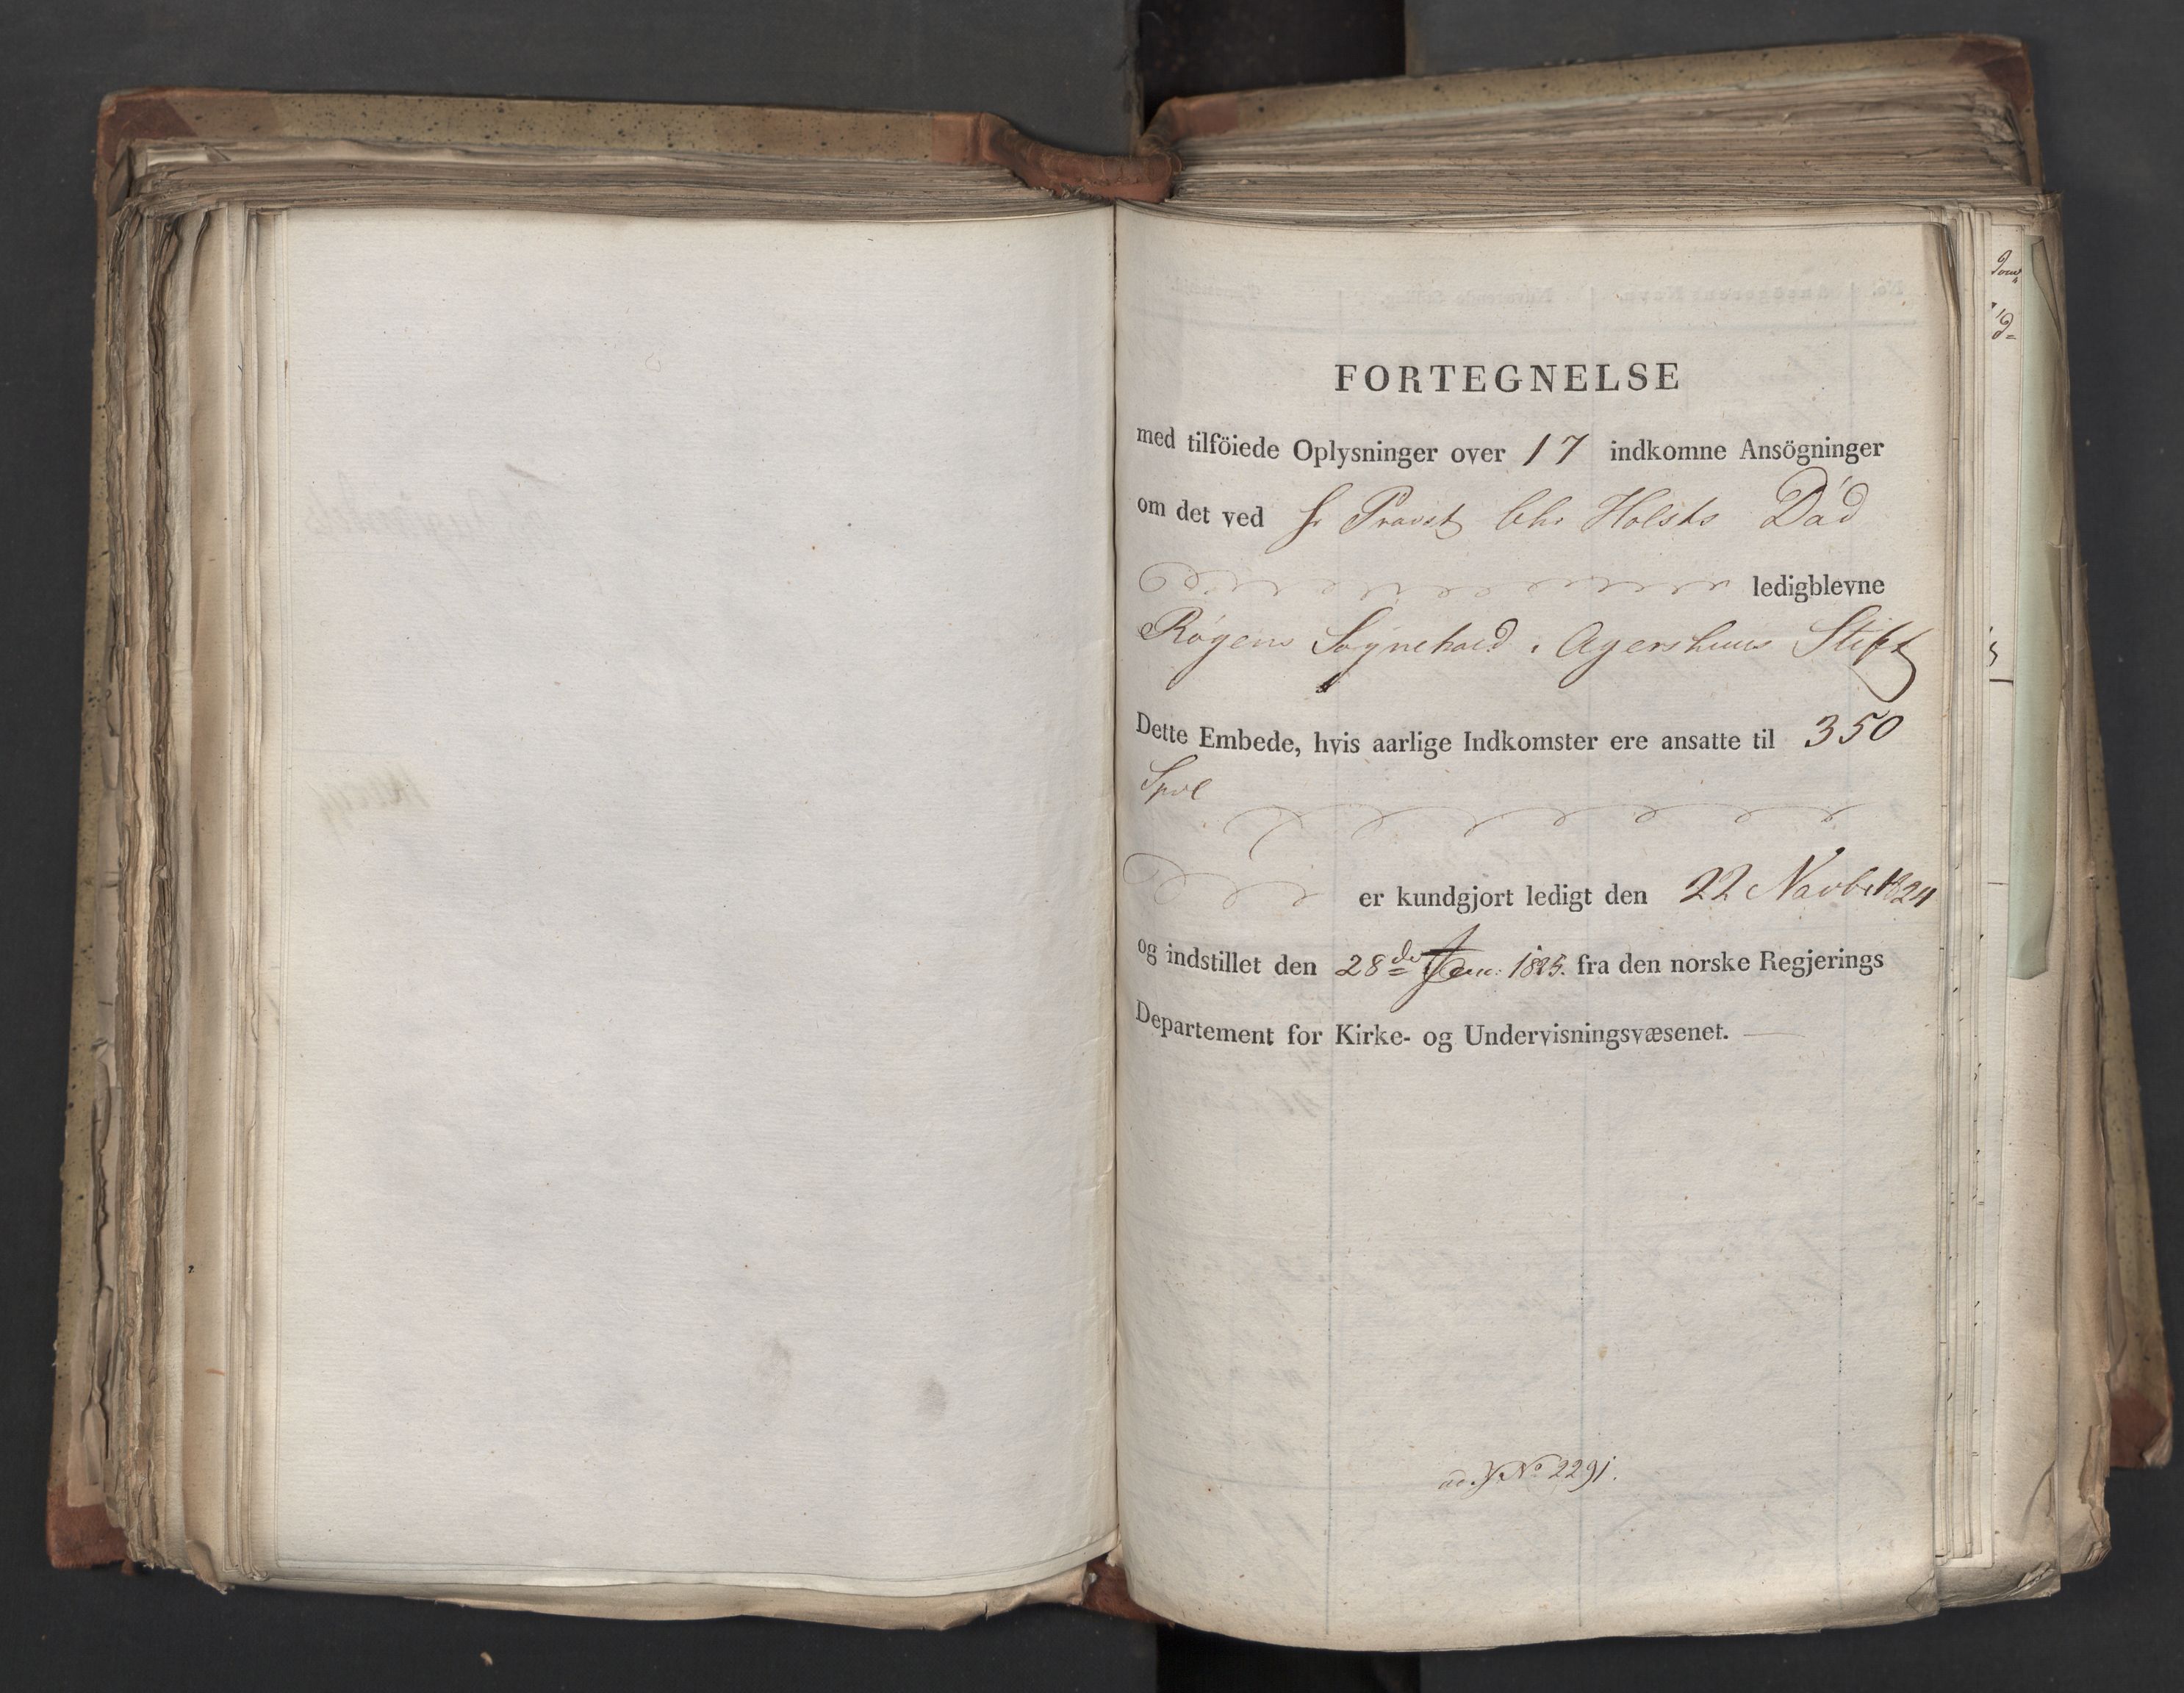 FORTEGNELSE
med tilföiede Oplysninger over 17 indkomne Ansögninger
om det ved Hr Provst Chr Holsts Död
ledigblevne
Røgens Sognekald i Agershuus Stift
Dette Embede, hvis aarlige Indkomster ere ansatte til 350
Spd
er kundgjort ledigt den 22 Novbr 1824
og indstillet den 28de 1825. fra den norske Regjerings
Departement for Kirke- og Undervisningsvæsenet.
ad. J. No 2291.